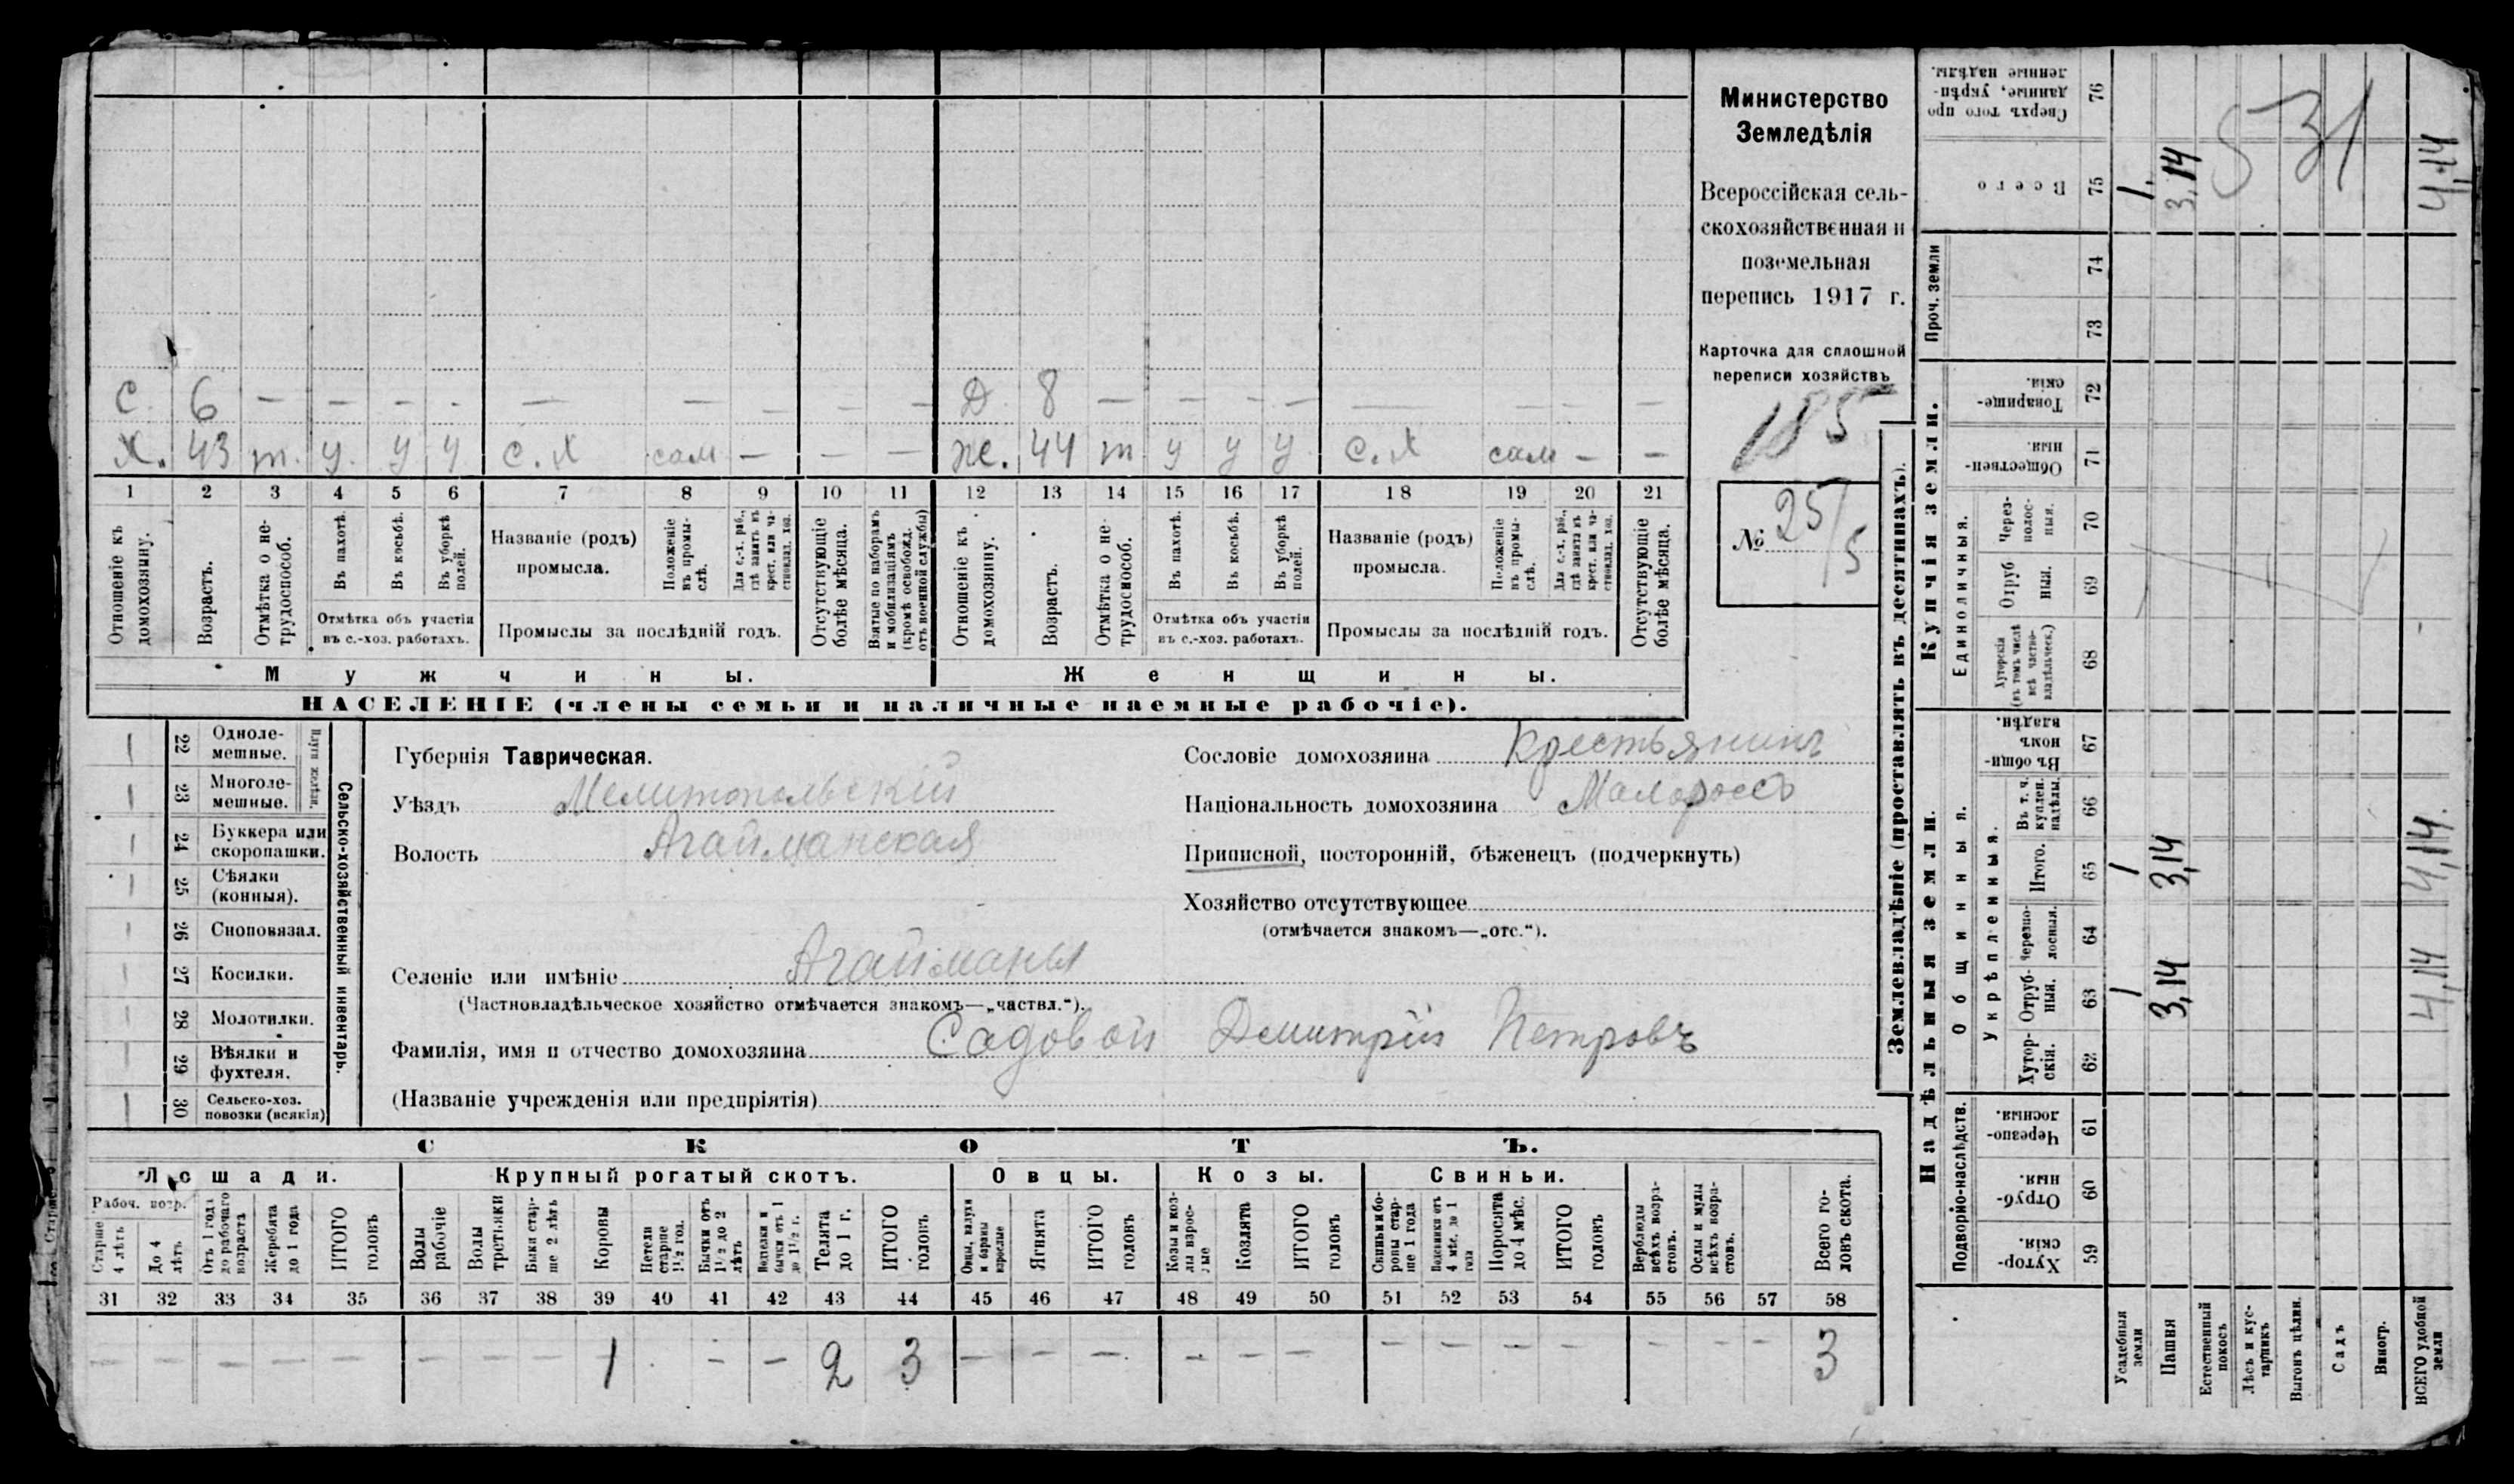 С. 6 — — — — — — — — — Д 8 — — — — — — — —
Х. 43 т. у. у у с. х сам — — — же. 44 т у у у с. х сам — —
1 2 3 4 5 6 7 8 9 10 11 12 13 14 15 16 17 18 19 20 21
Отношеніе къ домохозяину.
Возрастъ.
Отмѣтка о нетрудоспособ.
Въ пахотѣ.
Въ косьбѣ.
Въ уборкѣ полей.
Отмѣтка объ участіи
въ с.-хоз. работахъ.
Названіе (родъ)
промысла.
Положеніе въ промыслѣ.
Для с.-х. раб., гдѣ занятъ въ крест. или частновлад. хоз.
Промыслы за послѣдній годъ.
Отсутствующіе болѣе мѣсяца.
Взятые по наборамъ и мобилизаціямъ (кромѣ освобожд. отъ военной службы)
Отношеніе къ домохозяину.
Возрастъ.
Отмѣтка о нетрудоспособ.
Въ пахотѣ.
Въ косьбѣ.
Въ уборкѣ полей.
Отмѣтка объ участіи
въ с.-хоз. работахъ.
Названіе (родъ)
промысла.
Положеніе въ промыслѣ.
Для с.-х. раб., гдѣ занята въ крест. или частновлад. хоз.
Промыслы за послѣдній годъ.
Отсутствующіе болѣе мѣсяца.
Мужчины. Женщины.
НАСЕЛЕНІЕ (члены семьи и наличные наемные рабочіе).
Министерство
Земледѣлія
Всероссійская сель-
скохозяйственная и
поземельная
перепись 1917 г.
Карточка для сплошной
переписи хозяйствъ
185
№ 25/5
Сельско-хозяйственный инвентарь.
Плуги желѣзн.
— 22 Одноле-
мешные.
— 23 Многоле-
мешные.
— 24 Буккера или
скоропашки.
— 25 Сѣялки
(конныя).
— 26 Сноповязал.
— 27 Косилки.
— 28 Молотилки.
— 29 Вѣялки и
фухтеля.
— 30 Сельско-хоз.
повозки (всякія)
Губернія Таврическая.
Уѣздъ Мелитопольскій
Волость Агайманская
Селеніе или имѣніе Агайманы
(Частновладѣльческое хозяйство отмѣчается знакомъ—„частвл.“).
Фамилія, имя и отчество домохозяина Садовой Дмитрій Петровъ
(Названіе учрежденія или предпріятія)
Сословіе домохозяина Крестьянинъ
Національность домохозяина Малороссъ
Приписной, посторонній, бѣженецъ (подчеркнуть)
Хозяйство отсутствующее
(отмѣчается знакомъ—„отс.“).
СКОТЪ.
Лошади. Крупный рогатый скотъ. Овцы. Козы. Свиньи.
Рабоч. возр.
Старше 4 лѣтъ
До 4 лѣтъ
Отъ 1 года до рабочаго возраста
Жеребята до 1 года
ИТОГО головъ
Волы рабочіе
Волы третьяки
Быки старше 2 лѣтъ
Коровы
Нетели старше 1½ год.
Бычки отъ 1½ до 2 лѣтъ
Телята до 1 г.
ИТОГО головъ
Ягнята
ИТОГО головъ
Козы и козлы взрослые
Козлята
ИТОГО головъ
Свиньи и боровы старше 1 года
Подсвинки отъ 4 мѣс. до 1 года
Поросята до 4 мѣс.
ИТОГО головъ
Верблюды всѣхъ возрастовъ.
Ослы и мулы всѣхъ возрастовъ.
Всего головъ скота.
31 32 33 34 35 36 37 38 39 40 41 42 43 44 45 46 47 48 49 50 51 52 53 54 55 56 57 58
— — — — — — — — 1 — — 2 3 — — — — — — — — — — — — — 3
Землевладѣніе (проставлять въ десятинахъ).
Надѣльныя земли. Купчія земли. Проч. земли
Подворно-наслѣдств. Общинныя. Единоличныя.
Укрѣпленныя.
Хуторскія. 59
Отрубныя. 60
Черезполосныя. 61
Хуторскія. 62
Отрубныя. 63
Черезполосныя. 64
Итого. 65
Въ т. ч. куплен. надѣлы. 66
Въ общинномъ владѣн. 67
Хуторскія (въ томъ числѣ всѣ частновладѣльческ.) 68
Отрубныя. 69
Черезполосныя. 70
Общественныя. 71
Товарищескія. 72
73
74
Всего 75
Сверхъ того проданные, укрѣпленные надѣлы. 76
Усадебныя земли 1 1 1.
Пашня 3,14 3,14 3,14
Естественный покосъ
Лѣсъ и кустарникъ
Выгонъ цѣлин.
Садъ
Виногр.
ВСЕГО удобной земли 4,14 4,14 4,14. 4,14
531